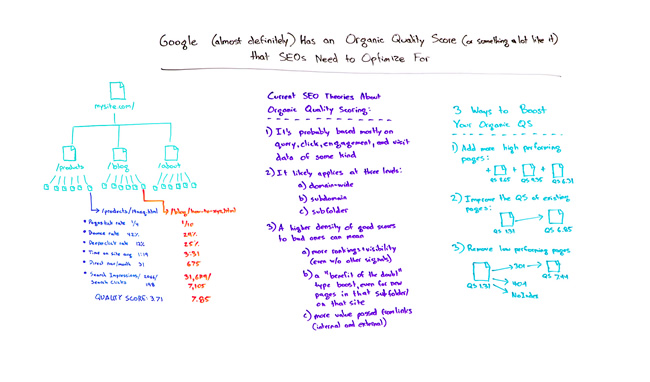 Google (almost definitely) Has an Organic Quality Score (or something a lot like it)
that SEOs Need to Optimize For
mysite.com/
/products
/blog
/about
/blog/how-to-xyz.html
Pogostick rate 1/4 1/10
Bounce rate 42% 25%
Deeper click rate 12% 25%
Time on site avg 1:19 3:31
Direct nav/month 31 675
Search Impressions/
Search Clicks:
198 7,105
QUALITY SCORE: 3.71 7.85
Current SEO Theories About
Organic Quality Scoring:
1) It's probably based mostly on
query, click, engagement, and visit
data of some kind
2) It likely applies at three levels:
a) domain-wide
b) subdomain
c) subfolder
3) A higher density of good scores
to bad ones can mean
a) more rankings + visibility
(even w/o other signals)
b) a "benefit of the doubt"
type boost, even for new
pages in that subfolder/
on that site
c) more value passed from links
(internal and external)
3 Ways to Boost
Your Organic QS
1) Add more high performing
pages:
+ + +
2) Improve the QS of existing
pages:
QS 1.31
QS 6.85
3) Remove low performing pages
301
404
NoIndex
QS 1.31